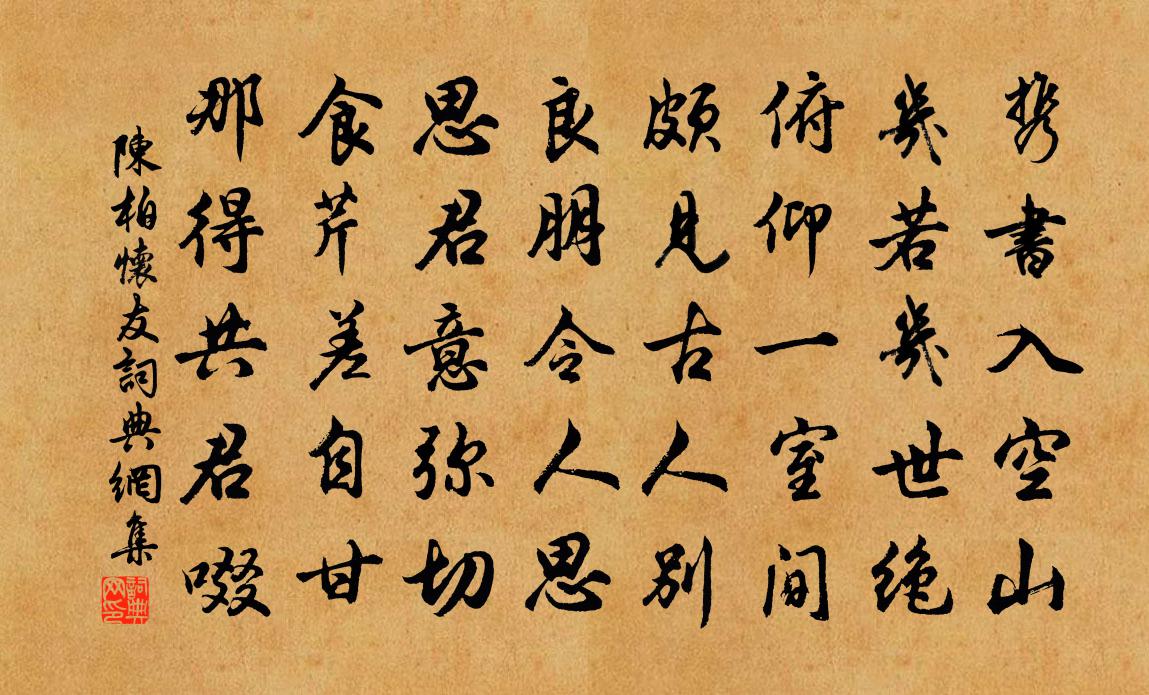 携書入空山
幾若幾世絶
俯仰一室間
頗見古人別
良朋令人思
思君意弥切
食芹差自甘
那得共君啜
陳柏懷友詞典網集
詞典网印